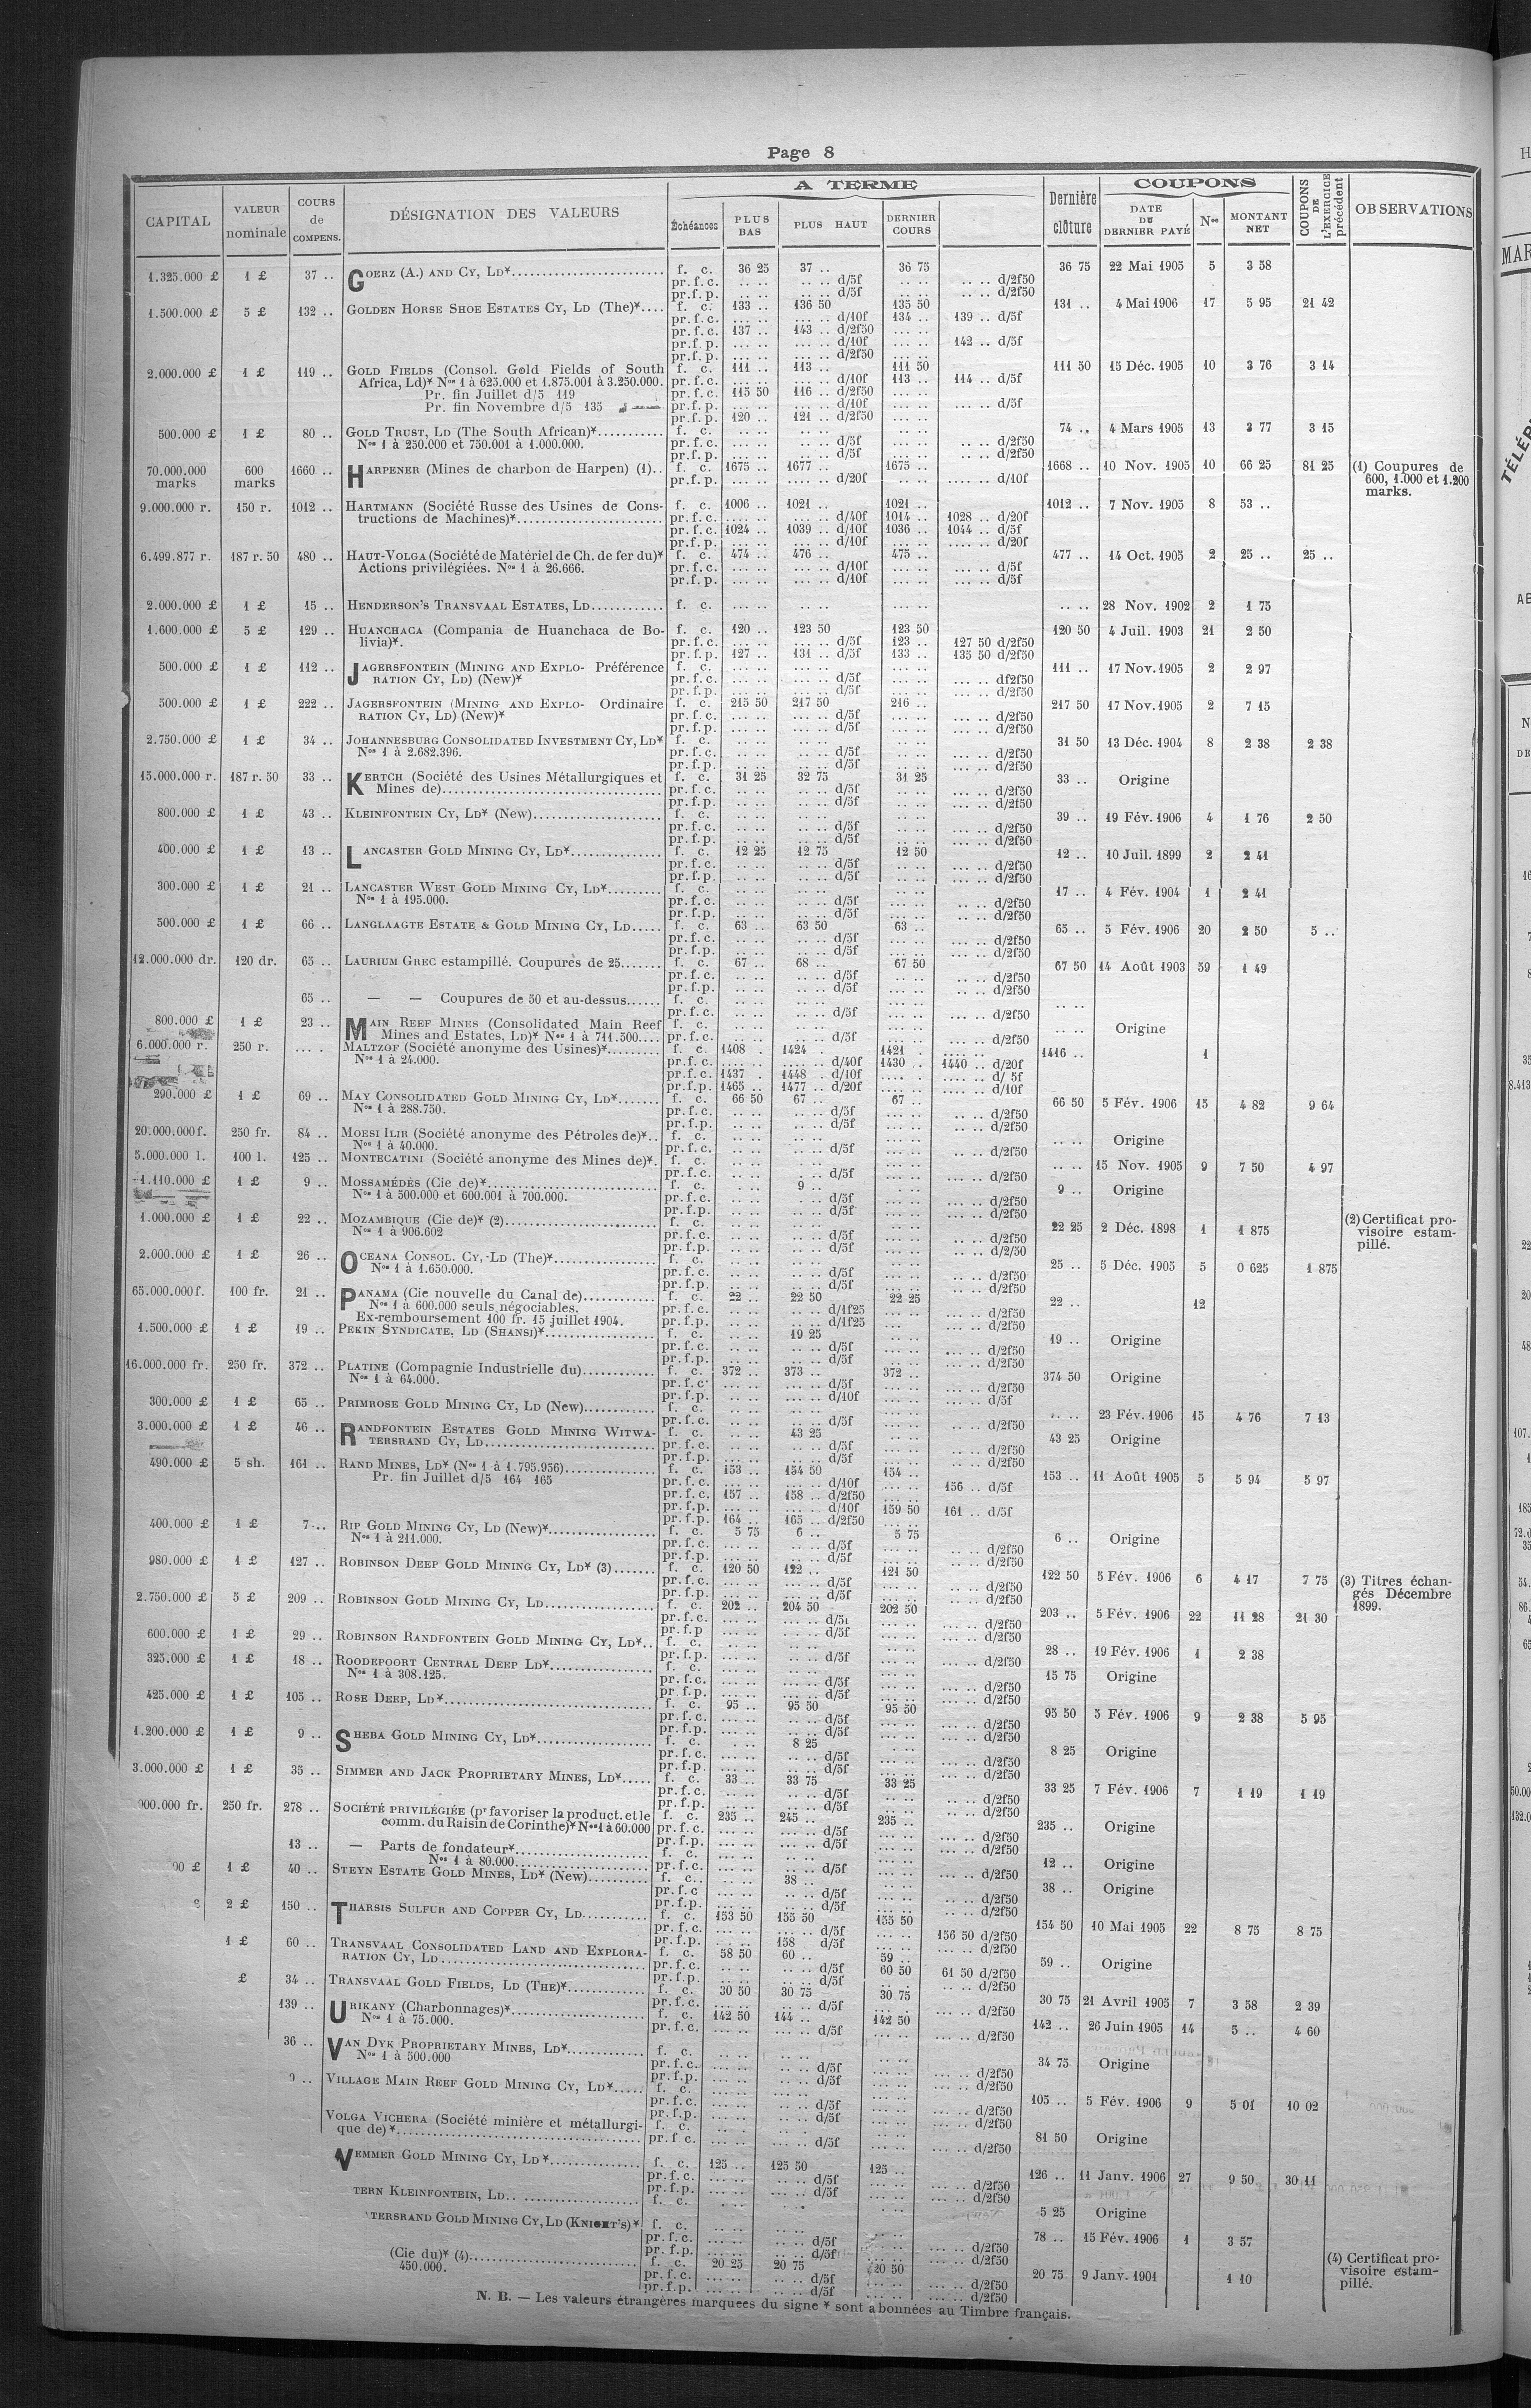 Page 8
CAPITAL | VALEUR nominale | COURS de COMPENS. | DÉSIGNATION DES VALEURS | A TERME | Dernière clôture | COUPONS | COUPONS DE L'EXERCICE précédent | OBSERVATIONS
Échéances | PLUS BAS | PLUS HAUT | DERNIER COURS | DATE DU DERNIER PAYÉ | Nos | MONTANT NET
1.325.000 £ | 1 £ | 37 .. | GOERZ (A.) AND CY, LD* | f. c. | 36 25 | 37 .. | 36 75 | 36 75 | 22 Mai 1905 | 5 | 3 58
pr.f.c. | .. .. | .. .. d/5f | .. .. | .. .. d/2f50
pr.f.p. | .. .. | .. .. d/5f | .. .. | .. .. d/2f50
1.500.000 £ | 5 £ | 132 .. | GOLDEN HORSE SHOE ESTATES CY, LD (The)* | f. c. | 133 .. | 136 50 | 135 50 | 131 .. | 4 Mai 1906 | 17 | 5 95 | 21 42
pr.f.c. | ... .. | ... .. d/10f | 134 .. | 139 .. d/5f
pr.f.c. | 137 .. | 143 .. d/2f50 | ... ..
pr.f.p. | ... .. | ... .. d/10f | ... .. | 142 .. d/5f
pr.f.p. | ... .. | ... .. d/2f50 | ... ..
2.000.000 £ | 1 £ | 119 .. | GOLD FIELDS (Consol. Gold Fields of South | f. c. | 111 .. | 113 .. | 111 50 | 111 50 | 15 Déc. 1905 | 10 | 3 76 | 3 14
Africa, Ld)* Nos 1 à 625.000 et 1.875.001 à 3.250.000. | pr.f.c. | ... .. | ... .. d/10f | 113 .. | 114 .. d/5f
Pr. fin Juillet d/5 119 | pr.f.c. | 115 50 | 116 .. d/2f50 | ... ..
Pr. fin Novembre d/5 135 | pr.f.p. | ... .. | ... .. d/10f | ... .. | ... .. d/5f
pr.f.p. | 120 .. | 121 .. d/2f50 | ... ..
500.000 £ | 1 £ | 80 .. | GOLD TRUST, LD (The South African)* | f. c. | .. .. | .. .. | .. .. | 74 .. | 4 Mars 1905 | 13 | 3 77 | 3 15
Nos 1 à 250.000 et 750.001 à 1.000.000. | pr.f.c. | .. .. | .. .. d/5f | .. .. | .. .. d/2f50
pr.f.p. | .. .. | .. .. d/5f | .. .. | .. .. d/2f50
70.000.000 marks | 600 marks | 1660 .. | HARPENER (Mines de charbon de Harpen) (1) | f. c. | 1675 .. | 1677 .. | 1675 .. | 1668 .. | 10 Nov. 1905 | 10 | 66 25 | 81 25 | (1) Coupures de 600, 1.000 et 1.200 marks.
pr.f.p. | .... .. | .... .. d/20f | .... .. | .... .. d/10f
9.000.000 r. | 150 r. | 1012 .. | HARTMANN (Société Russe des Usines de Cons- | f. c. | 1006 .. | 1021 .. | 1021 .. | 1012 .. | 7 Nov. 1905 | 8 | 53 ..
tructions de Machines)* | pr.f.c. | .... .. | .... .. d/40f | 1014 .. | 1028 .. d/20f
pr.f.c. | 1024 .. | 1039 .. d/10f | 1036 .. | 1044 .. d/5f
pr.f.p. | .... .. | .... .. d/10f | .... .. | .... .. d/20f
6.499.877 r. | 187 r. 50 | 480 .. | HAUT-VOLGA (Société de Matériel de Ch. de fer du)* | f. c. | 474 .. | 476 .. | 475 .. | 477 .. | 14 Oct. 1905 | 2 | 25 .. | 25 ..
Actions privilégiées. Nos 1 à 26.666. | pr.f.c. | ... .. | ... .. d/10f | ... .. | ... .. d/5f
pr.f.p. | ... .. | ... .. d/10f | ... .. | ... .. d/5f
2.000.000 £ | 1 £ | 15 .. | HENDERSON'S TRANSVAAL ESTATES, LD | f. c. | ... .. | ... .. | ... .. | .. .. | 28 Nov. 1902 | 2 | 1 75
1.600.000 £ | 5 £ | 129 .. | HUANCHACA (Compania de Huanchaca de Bo- | f. c. | 120 .. | 123 50 | 123 50 | 120 50 | 4 Juil. 1903 | 21 | 2 50
livia)*. | pr.f.c. | ... .. | ... .. d/5f | 123 .. | 127 50 d/2f50
pr.f.p. | 127 .. | 131 .. d/5f | 133 .. | 135 50 d/2f50
500.000 £ | 1 £ | 112 .. | JAGERSFONTEIN (MINING AND EXPLO- Préférence | f. c. | ... .. | ... .. | ... .. | 111 .. | 17 Nov. 1905 | 2 | 2 97
RATION CY, LD) (New)* | pr.f.c. | ... .. | ... .. d/5f | ... .. | ... .. df2f50
pr.f.p. | ... .. | ... .. d/5f | ... .. | ... .. d/2f50
500.000 £ | 1 £ | 222 .. | JAGERSFONTEIN (MINING AND EXPLO- Ordinaire | f. c. | 215 50 | 217 50 | 216 .. | 217 50 | 17 Nov. 1905 | 2 | 7 15
RATION CY, LD) (New)* | pr.f.c. | ... .. | ... .. d/5f | ... .. | ... .. d/2f50
pr.f.p. | ... .. | ... .. d/5f | ... .. | ... .. d/2f50
2.750.000 £ | 1 £ | 34 .. | JOHANNESBURG CONSOLIDATED INVESTMENT CY, LD* | f. c. | .. .. | .. .. | .. .. | 31 50 | 13 Déc. 1904 | 8 | 2 38 | 2 38
Nos 1 à 2.682.396. | pr.f.c. | .. .. | .. .. d/5f | .. .. | ... .. d/2f50
pr.f.p. | .. .. | .. .. d/5f | .. .. | ... .. d/2f50
15.000.000 r. | 187 r. 50 | 33 .. | KERTCH (Société des Usines Métallurgiques et | f. c. | 31 25 | 32 75 | 31 25 | 33 .. | Origine
Mines de) | pr.f.c. | .. .. | .. .. d/5f | .. .. | ... .. d/2f50
pr.f.p. | .. .. | .. .. d/5f | .. .. | ... .. d/2f50
800.000 £ | 1 £ | 43 .. | KLEINFONTEIN CY, LD* (New) | f. c. | .. .. | .. .. | .. .. | 39 .. | 19 Fév. 1906 | 4 | 1 76 | 2 50
pr.f.c. | .. .. | .. .. d/5f | .. .. | ... .. d/2f50
pr.f.p. | .. .. | .. .. d/5f | .. .. | ... .. d/2f50
400.000 £ | 1 £ | 13 .. | LANCASTER GOLD MINING CY, LD* | f. c. | 12 25 | 12 75 | 12 50 | 12 .. | 10 Juil. 1899 | 2 | 2 41
pr.f.c. | .. .. | .. .. d/5f | .. .. | ... .. d/2f50
pr.f.p. | .. .. | .. .. d/5f | .. .. | ... .. d/2f50
300.000 £ | 1 £ | 21 .. | LANCASTER WEST GOLD MINING CY, LD* | f. c. | .. .. | .. .. | .. .. | 17 .. | 4 Fév. 1904 | 1 | 2 41
Nos 1 à 195.000. | pr.f.c. | .. .. | .. .. d/5f | .. .. | .. .. d/2f50
pr.f.p. | .. .. | .. .. d/5f | .. .. | .. .. d/2f50
500.000 £ | 1 £ | 66 .. | LANGLAAGTE ESTATE & GOLD MINING CY, LD | f. c. | 63 .. | 63 50 | 63 .. | 65 .. | 5 Fév. 1906 | 20 | 2 50 | 5 ..
pr.f.c. | .. .. | .. .. d/5f | .. .. | ... .. d/2f50
pr.f.p. | .. .. | .. .. d/5f | .. .. | ... .. d/2f50
12.000.000 dr. | 120 dr. | 65 .. | LAURIUM GREC estampillé. Coupures de 25 | f. c. | 67 .. | 68 .. | 67 50 | 67 50 | 14 Août 1903 | 59 | 1 49
pr.f.c. | .. .. | .. .. d/5f | .. .. | .. .. d/2f50
pr.f.p. | .. .. | .. .. d/5f | .. .. | .. .. d/2f50
65 .. | — — Coupures de 50 et au-dessus | f. c. | .. .. | .. .. | .. .. | .. ..
pr.f.c. | .. .. | .. .. d/5f | .. .. | .. .. d/2f50
800.000 £ | 1 £ | 23 .. | MAIN REEF MINES (Consolidated Main Reef | f. c. | .. .. | .. .. | .. .. | .. .. | Origine
Mines and Estates, Ld)* Nos 1 à 711.500 | pr.f.c. | .. .. | .. .. d/5f | .. .. | .. .. d/2f50
6.000.000 r. | 250 r. | .... . | MALTZOF (Société anonyme des Usines)* | f. c. | 1408 . | 1424 . | 1421 . | 1416 .. | 1
Nos 1 à 24.000. | pr.f.c. | .... .. | .... .. d/40f | 1430 .. | 1440 .. d/20f
pr.f.c. | 1437 . | 1448 .. d/10f | .... . | .... .. d/ 5f
pr.f.p. | 1465 .. | 1477 .. d/20f | .... .. | .... .. d/10f
290.000 £ | 1 £ | 69 .. | MAY CONSOLIDATED GOLD MINING CY, LD* | f. c. | 66 50 | 67 .. | 67 .. | 66 50 | 5 Fév. 1906 | 15 | 4 82 | 9 64
Nos 1 à 288.750. | pr.f.c. | .. .. | .. .. d/5f | .. .. | .. .. d/2f50
pr.f.p. | .. .. | .. .. d/5f | .. .. | .. .. d/2f50
20.000.000 f. | 250 fr. | 84 .. | MOESI ILIR (Société anonyme des Pétroles de)* | f. c. | .. .. | .. .. | .. .. | .. .. | Origine
Nos 1 à 40.000. | pr.f.c. | .. .. | .. .. d/5f | .. .. | .. .. d/2f50
5.000.000 l. | 100 l. | 125 .. | MONTECATINI (Société anonyme des Mines de)*. | f. c. | .. .. | .. .. | .. .. | .. .. | 15 Nov. 1905 | 9 | 7 50 | 4 97
pr.f.c. | ... .. | ... .. d/5f | ... .. | ... .. d/2f50
1.110.000 £ | 1 £ | 9 .. | MOSSAMÉDÈS (Cie de)* | f. c. | .. .. | 9 .. | .. .. | 9 .. | Origine
Nos 1 à 500.000 et 600.001 à 700.000. | pr.f.c. | .. .. | .. .. d/5f | .. .. | .. .. d/2f50
pr.f.p. | .. .. | .. .. d/5f | .. .. | .. .. d/2f50
1.000.000 £ | 1 £ | 22 .. | MOZAMBIQUE (Cie de)* (2) | f. c. | .. .. | .. .. | .. .. | 22 25 | 2 Déc. 1898 | 1 | 1 875 | (2) Certificat pro- visoire estam- pillé.
Nos 1 à 906.602 | pr.f.c. | .. .. | .. .. d/5f | .. .. | .. .. d/2f50
pr.f.p. | .. .. | .. .. d/5f | .. .. | .. .. d/2/50
2.000.000 £ | 1 £ | 26 .. | OCEANA CONSOL. CY, LD (The)* | f. c. | .. .. | .. .. | .. .. | 25 .. | 5 Déc. 1905 | 5 | 0 625 | 1 875
Nos 1 à 1.650.000. | pr.f.c. | .. .. | .. .. d/5f | .. .. | .. .. d/2f50
pr.f.p. | .. .. | .. .. d/5f | .. .. | .. .. d/2f50
65.000.000 f. | 100 fr. | 21 .. | PANAMA (Cie nouvelle du Canal de) | f. c. | 22 .. | 22 50 | 22 25 | 22 .. | 12
Nos 1 à 600.000 seuls négociables. | pr.f.c. | ... .. | ... .. d/1f25 | ... .. | ... .. d/2f50
Ex-remboursement 100 fr. 15 juillet 1904. | pr.f.p. | ... .. | ... .. d/1f25 | ... .. | ... .. d/2f50
1.500.000 £ | 1 £ | 19 .. | PEKIN SYNDICATE, LD (SHANSI)* | f. c. | .. .. | 19 25 | .. .. | 19 .. | Origine
pr.f.c. | .. .. | .. .. d/5f | .. .. | ... .. d/2f50
pr.f.p. | .. .. | .. .. d/5f | .. .. | ... .. d/2f50
16.000.000 fr. | 250 fr. | 372 .. | PLATINE (Compagnie Industrielle du) | f. c. | 372 .. | 373 .. | 372 .. | 374 50 | Origine
Nos 1 à 64.000. | pr.f.c. | ... .. | ... .. d/5f | ... .. | ... .. d/2f50
pr.f.p. | ... .. | ... .. d/10f | ... .. | ... .. d/5f
300.000 £ | 1 £ | 65 .. | PRIMROSE GOLD MINING CY, LD (New) | f. c. | .. .. | .. .. | .. .. | .. .. | 23 Fév. 1906 | 15 | 4 76 | 7 13
pr.f.c. | .. .. | .. .. d/5f | .. .. | ... .. d/2f50
3.000.000 £ | 1 £ | 46 .. | RANDFONTEIN ESTATES GOLD MINING WITWA- | f. c. | .. .. | 43 25 | .. .. | 43 25 | Origine
TERSRAND CY, LD | pr.f.c. | .. .. | .. .. d/5f | .. .. | ... .. d/2f50
pr.f.p. | .. .. | .. .. d/5f | .. .. | ... .. d/2f50
490.000 £ | 5 sh. | 161 .. | RAND MINES, LD* (Nos 1 à 1.795.956) | f. c. | 153 .. | 154 50 | 154 .. | 153 .. | 11 Août 1905 | 5 | 5 94 | 5 97
Pr. fin Juillet d/5 164 165 | pr.f.c. | ... .. | ... .. d/10f | ... .. | 156 .. d/5f
pr.f.c. | 157 .. | 158 .. d/2f50 | ... ..
pr.f.p. | ... .. | ... .. d/10f | 159 50 | 161 .. d/5f
pr.f.p. | 164 .. | 165 .. d/2f50 | ... ..
400.000 £ | 1 £ | 7 .. | RIP GOLD MINING CY, LD (New)* | f. c. | 5 75 | 6 .. | 5 75 | 6 .. | Origine
Nos 1 à 211.000. | pr.f.c. | ... .. | ... .. d/5f | ... .. | .. .. d/2f50
pr.f.p. | ... .. | ... .. d/5f | ... .. | .. .. d/2f50
980.000 £ | 1 £ | 127 .. | ROBINSON DEEP GOLD MINING CY, LD* (3) | f. c. | 120 50 | 122 .. | 121 50 | 122 50 | 5 Fév. 1906 | 6 | 4 17 | 7 75 | (3) Titres échan- gés Décembre 1899.
pr.f.c. | ... .. | ... .. d/5f | ... .. | ... .. d/2f50
pr.f.p. | ... .. | ... .. d/5f | ... .. | ... .. d/2f50
2.750.000 £ | 5 £ | 209 .. | ROBINSON GOLD MINING CY, LD | f. c. | 202 .. | 204 50 | 202 50 | 203 .. | 5 Fév. 1906 | 22 | 11 28 | 21 30
pr.f.c. | ... .. | ... .. d/5f | ... .. | ... .. d/2f50
pr.f.p | ... .. | ... .. d/5f | ... .. | ... .. d/2f50
600.000 £ | 1 £ | 29 .. | ROBINSON RANDFONTEIN GOLD MINING CY, LD* | f. c. | .. .. | .. .. | .. .. | 28 .. | 19 Fév. 1906 | 1 | 2 38
pr.f.p. | ... .. | ... .. d/5f | ... .. | ... .. d/2f50
325.000 £ | 1 £ | 18 .. | ROODEPOORT CENTRAL DEEP LD* | f. c. | .. .. | .. .. | .. .. | 15 75 | Origine
Nos 1 à 308.125. | pr.f.c. | ... .. | ... .. d/5f | ... .. | ... .. d/2f50
pr.f.p. | ... .. | ... .. d/5f | ... .. | ... .. d/2f50
425.000 £ | 1 £ | 105 .. | ROSE DEEP, LD* | f. c. | 95 .. | 95 50 | 95 50 | 95 50 | 5 Fév. 1906 | 9 | 2 38 | 5 95
pr.f.c. | ... .. | .. .. d/5f | ... .. | ... .. d/2f50
pr.f.p. | ... .. | .. .. d/5f | ... .. | ... .. d/2f50
1.200.000 £ | 1 £ | 9 .. | SHEBA GOLD MINING CY, LD* | f. c. | .. .. | 8 25 | .. .. | 8 25 | Origine
pr.f.c. | ... .. | .. .. d/5f | ... .. | ... .. d/2f50
pr.f.p. | ... .. | .. .. d/5f | ... .. | ... .. d/2f50
3.000.000 £ | 1 £ | 35 .. | SIMMER AND JACK PROPRIETARY MINES, LD* | f. c. | 33 .. | 33 75 | 33 25 | 33 25 | 7 Fév. 1906 | 7 | 1 19 | 1 19
pr.f.c. | .. .. | .. .. d/5f | .. .. | .. .. d/2f50
pr.f.p. | .. .. | .. .. d/5f | .. .. | .. .. d/2f50
900.000 fr. | 250 fr. | 278 .. | SOCIÉTÉ PRIVILÉGIÉE (pr favoriser la product. et le | f. c. | 235 .. | 245 .. | 235 .. | 235 .. | Origine
comm. du Raisin de Corinthe)* Nos 1 à 60.000 | pr.f.c. | ... .. | ... .. d/5f | ... .. | ... .. d/2f50
pr.f.p. | ... .. | ... .. d/5f | ... .. | ... .. d/2f50
13 .. | — Parts de fondateur* | f. c. | ... .. | ... .. | ... .. | 12 .. | Origine
Nos 1 à 80.000 | pr.f.c. | ... .. | .. .. d/5f | ... .. | ... .. d/2f50
00 £ | 1 £ | 40 .. | STEYN ESTATE GOLD MINES, LD* (New) | f. c. | ... .. | 38 .. | .. .. | 38 .. | Origine
pr.f.c | ... .. | .. .. d/5f | .. .. | .. .. d/2f50
pr.f.p. | ... .. | .. .. d/5f | .. .. | .. .. d/2f50
2 £ | 150 .. | THARSIS SULFUR AND COPPER CY, LD | f. c. | 153 50 | 155 50 | 155 50 | 154 50 | 10 Mai 1905 | 22 | 8 75 | 8 75
pr.f.c. | ... .. | ... .. d/5f | ... .. | 156 50 d/2f50
pr.f.p. | ... .. | 158 d/5f | ... .. | ... .. d/2f50
1 £ | 60 .. | TRANSVAAL CONSOLIDATED LAND AND EXPLORA- | f. c. | 58 50 | 60 .. | 59 .. | 59 .. | Origine
RATION CY, LD | pr.f.c. | .. .. | .. .. d/5f | 60 50 | 61 50 d/2f50
pr.f.p. | .. .. | .. .. d/5f | .. .. | .. .. d/2f50
£ | 34 .. | TRANSVAAL GOLD FIELDS, LD (THE)* | f. c. | 30 50 | 30 75 | 30 75 | 30 75 | 21 Avril 1905 | 7 | 3 58 | 2 39
pr.f.c. | ... .. | .. .. d/5f | ... .. | ... .. d/2f50
139 .. | URIKANY (Charbonnages)* | f. c. | 142 50 | 144 .. | 142 50 | 142 .. | 26 Juin 1905 | 14 | 5 .. | 4 60
Nos 1 à 75.000. | pr.f.c. | ... .. | ... .. d/5f | ... .. | ... .. d/2f50
36 .. | VAN DYK PROPRIETARY MINES, LD* | f. c. | .. .. | .. .. | .. .. | 34 75 | Origine
Nos 1 à 500.000 | pr.f.c. | ... .. | .. .. d/5f | ... .. | ... .. d/2f50
pr.f.p. | ... .. | .. .. d/5f | ... .. | ... .. d/2f50
VILLAGE MAIN REEF GOLD MINING CY, LD* | f. c. | ... .. | ... .. | ... .. | 105 .. | 5 Fév. 1906 | 9 | 5 01 | 10 02
pr.f.c. | ... .. | ... .. d/5f | ... .. | ... .. d/2f50
pr.f.p. | ... .. | ... .. d/5f | ... .. | ... .. d/2f50
VOLGA VICHERA (Société minière et métallurgi- | f. c. | ... .. | ... .. | ... .. | 81 50 | Origine
que de)* | pr.f.c. | ... .. | ... .. d/5f | ... .. | ... .. d/2f50
VEMMER GOLD MINING CY, LD* | f. c. | 125 .. | 125 50 | 125 .. | 126 .. | 11 Janv. 1906 | 27 | 9 50 | 30 11
pr.f.c. | ... .. | ... .. d/5f | ... .. | ... .. d/2f50
pr.f.p. | ... .. | ... .. d/5f | ... .. | ... .. d/2f50
TERN KLEINFONTEIN, LD | f. c. | 5 25 | Origine
TERSRAND GOLD MINING CY, LD (KNIGHT'S)* | f. c. | .. .. | .. .. | .. .. | 78 .. | 15 Fév. 1906 | 1 | 3 57
pr.f.c. | ... .. | .. .. d/5f | ... .. | ... .. d/2f50
pr.f.p. | ... .. | .. .. d/5f | ... .. | ... .. d/2f50
(Cie du)* (4) | f. c. | 20 25 | 20 75 | 20 50 | 20 75 | 9 Janv. 1901 | 1 10 | (4) Certificat pro- visoire estam- pillé.
450.000. | pr.f.c. | ... .. | .. .. d/5f | ... .. | ... .. d/2f50
pr.f.p. | ... .. | .. .. d/5f | ... .. | ... .. d/2f50
N. B. — Les valeurs étrangères marquées du signe * sont abonnées au Timbre français.